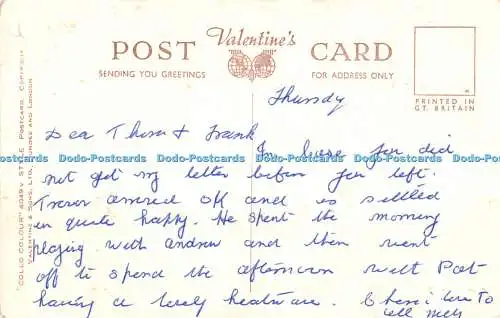 POST Valentine's CARD
SENDING YOU GREETINGS
FOR ADDRESS ONLY
PRINTED IN
GT. BRITAIN
"COLLO COLOUR" STYLE POSTCARD. COPYRIGHT
VALENTINE & SONS, LTD., DUNDEE AND LONDON
Thursdy
Dea & Frank
I'm you did
not get my letter before you left.
Trevor arrived OK and is settled
in quite happy. He spent the morning
playing with Andrew and then went
off to spend the afternoon with Pat
having a lovely Cheerio love to
Dodo-Postcards Dodo-Postcards Dodo-Postcards Dodo-Postcards Dodo-Postcards
Dodo-Postcards Dodo-Postcards Dodo-Postcards Dodo-Postcards Dodo-Postcards